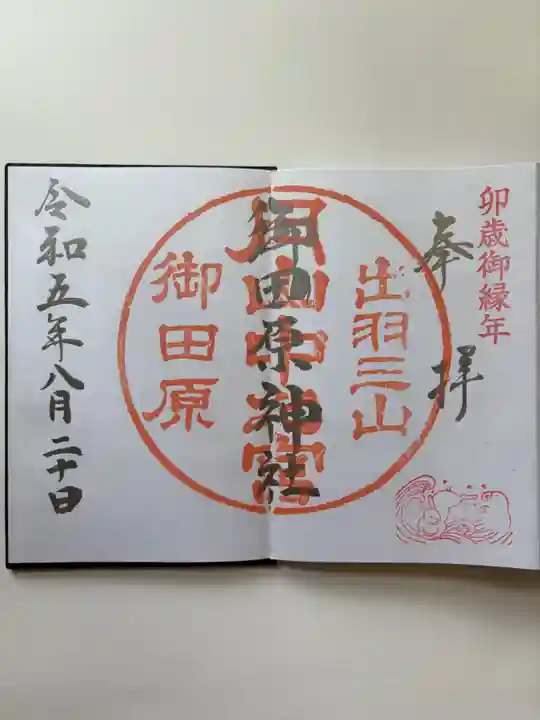 卯歳御縁年
奉拝
出羽三山
月山中之宮
御田原神社
御田原
令和五年八月二十日